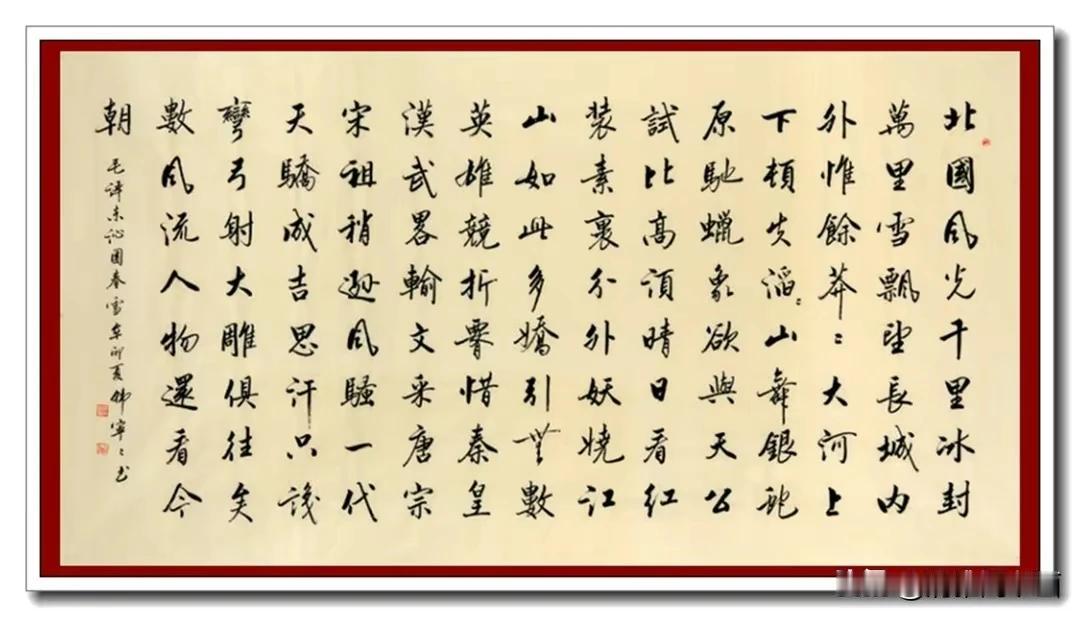 北國風光千里冰封
萬里雪飄望長城内
外惟餘莽〻大河上
下頓失滔〻山舞銀蛇
原馳蠟象欲與天公
試比高須晴日看紅
装素裹分外妖娆江
山如此多嬌引無數
英雄競折惜秦皇
漢武畧輸文采唐宗
宋祖稍遜風騷一代
天驕成吉思汗只識
彎弓射大雕俱往矣
數風流人物還看今
朝
毛泽东沁園春雪辛卯夏韩寧〻书